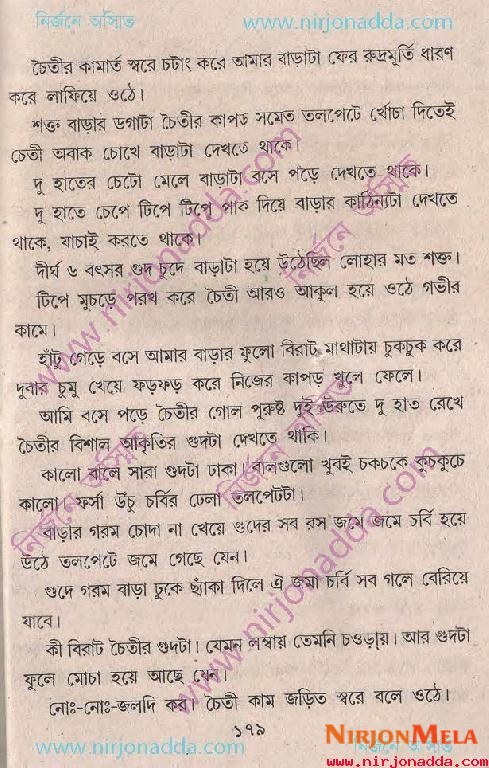 নির্জনে অসিাভ www.nirjonadda.com
চৈতীর কামার্ত স্বরে চটাং করে আমার বাড়াটা ফের রুদ্রমূর্তি ধারণ
করে লাফিয়ে ওঠে।
শক্ত বাড়ার ডগাটা চৈতীর কাপড় সমেত তলপেটে খোঁচা দিতেই
চেতী অবাক চোখে বাড়াটা দেখতে থাকে।
দু হাতের চেটো মেলে বাড়াটা বসে পড়ে দেখতে থাকে।
দু হাতে চেপে টিপে টিপে পাক দিয়ে বাড়ার কাঠিন্যটা দেখতে
থাকে, যাচাই করতে থাকে।
দীর্ঘ ৬ বৎসর গুদ চুদে বাড়াটা হয়ে উঠেছিল লোহার মত শক্ত।
টিপে মুচড়ে পরখ করে চৈতী আরও আকুল হয়ে ওঠে গভীর
কামে।
হাঁটু গেড়ে বসে আমার বাড়ার ফুলো বিরাট মাথাটায় চুকচুক করে
দুবার চুমু খেয়ে ফড়ফড় করে নিজের কাপড় খুলে ফেলে।
আমি বসে পড়ে চৈতীর গোল পুরুষ্ট দুই উরুতে দু হাত রেখে
চৈতীর বিশাল আকৃতির গুদটা দেখতে থাকি।
কালো বালে সারা গুদটা ঢাকা। বালগুলো খুবই চকচকে কুচকুচে
কালো। ফর্সা উঁচু চর্বির ঢেলা তলপেটটা।
বাড়ার গরম চোদা না খেয়ে গুদের সব রস জমে জমে চর্বি হয়ে
উঠে তলপেটে জমে গেছে যেন।
গুদে গরম বাড়া ঢুকে ছ্যাঁকা দিলে ঐ জমা চর্বি সব গলে বেরিয়ে
যাবে।
কী বিরাট চৈতীর গুদটা। যেমন লম্বায় তেমনি চওড়ায়। আর গুদটা
ফুলে মোচা হয়ে আছে যেন।
নোঃ-নোঃ-জলদি কর। চৈতী কাম জড়িত স্বরে বলে ওঠে।
১৭৯
www.nirjonadda.com নির্জনে অসিাভ
NIRJONMELA
www.nirjonadda.com